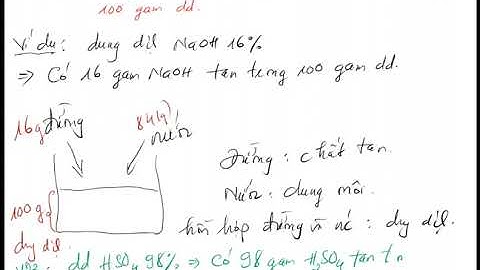 100 gam dd.
Ví dụ: dung dịch NaOH 16%
⇒ Có 16 gam NaOH tan trong 100 gam dd.
16g đường 84(g) nước
Đường: chất tan.
Nước: dung môi.
100g dung dịch
hỗn hợp đường và nc: dung dịch.
VD2: dd H₂SO₄ 98% ⇒ Có 98 gam H₂SO₄ tan tr